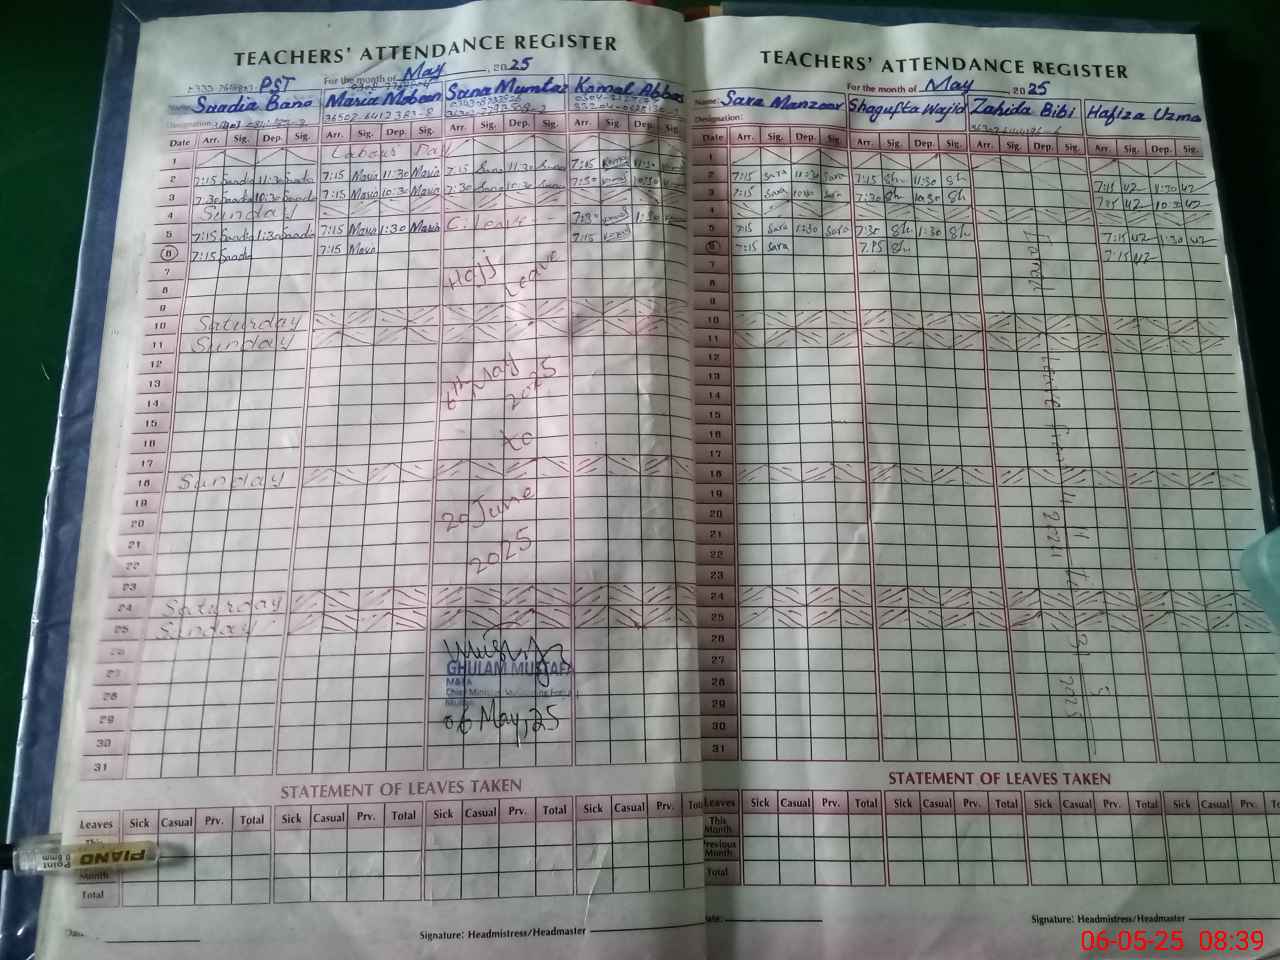 TEACHERS' ATTENDANCE REGISTER
PST For the month of May, 2025
Name: Saadia Bano Maria Mobeen Sana Mumtaz Kamal Abbas
Designation:
Date Arr. Sig. Dep. Sig. Arr. Sig. Dep. Sig. Arr. Sig. Dep. Sig. Arr. Sig. Dep. Sig.
1 Labour Day
2 7:15 Saadia 11:30 Saadia 7:15 Maria 11:30 Maria 7:15 Sana 11:30 Sana 7:15 11:30
3 7:30 Saadia 10:30 Saadia 7:15 Maria 10:30 Maria 7:30 Sana 10:30 Sana 7:30 10:30
4 Sunday
5 7:15 Saadia 1:30 Saadia 7:15 Maria 1:30 Maria C. leave 1:30
6 7:15 Saadia 7:15 Maria 7:15
7 Hajj
8 Leave
9
10 Saturday
11 Sunday
12
13 6th May
14 2025
15
16 to
17
18 Sunday
19
20 20 June
21
22 2025
23
24 Saturday
25 Sunday
26
27 GHULAM MUSTAFA
M&EA
28 Chief Minister Monitoring Force
29 06 May, 25
30
31
STATEMENT OF LEAVES TAKEN
Leaves Sick Casual Prv. Total Sick Casual Prv. Total Sick Casual Prv. Total Sick Casual Prv.
This
Month
Total
PIANO
Point
0.8mm
Signature: Headmistress/Headmaster
TEACHERS' ATTENDANCE REGISTER
For the month of May 2025
Name: Sara Manzoor Shagufta Wajid Zahida Bibi Hafiza Uzma
Designation:
Date Arr. Sig. Dep. Sig. Arr. Sig. Dep. Sig. Arr. Sig. Dep. Sig. Arr. Sig. Dep. Sig.
1
2 7:15 Sara 11:30 Sara 7:15 Sh 11:30 Sh 7:15 UZ 11:30 UZ
3 7:15 Sara 10:30 Sara 7:30 Sh 10:30 Sh 7:15 UZ 10:30 UZ
4
5 7:15 Sara 1:30 Sara 7:30 Sh 1:30 Sh 7:15 UZ 1:30 UZ
6 7:15 Sara 7:15 Sh 7:15 UZ
7
8
9
10
11
12
13
14
15
16
17
18
19
20
21
22
23
24
25
26
27
28
29
30
31
Leave from
STATEMENT OF LEAVES TAKEN
Leaves Sick Casual Prv. Total Sick Casual Prv. Total Sick Casual Prv. Total Sick Casual Prv.
This
Month
Previous
Month
Total
Signature: Headmistress/Headmaster
06-05-25 08:39